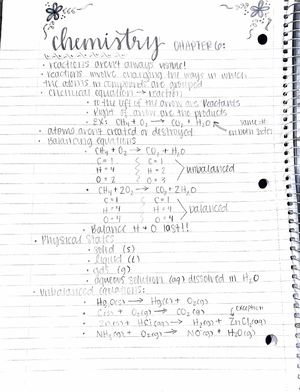 chemistry CHAPTER 6:
• reactions aren't always visible!
• reactions involve changing the ways in which
the atoms in compounds are grouped
• chemical equation → reaction
• to the left of the arrow are Reactants
• Right of arrow are the products
• EX: CH₄ + O₂ → CO₂ + H₂O same #
on both sides
• atoms aren't created or destroyed
• Balancing equations
• CH₄ + O₂ → CO₂ + H₂O
C = 1 C = 1
H = 4 H = 2 unbalanced
O = 2 O = 3
• CH₄ + 2O₂ → CO₂ + 2H₂O
C = 1 C = 1
H = 4 H = 4 balanced
O = 4 O = 4
• Balance H + O last!!
• Physical States
• solid (s)
• liquid (l)
• gas (g)
• aqueous solution (aq) dissolved in H₂O
• unbalanced equations: exception
• HgO(s) → Hg(l) + O₂(g)
• C(s) + O₂(g) → CO₂(g)
• Zn(s) + HCl(aq) → H₂(g) + ZnCl₂(aq)
• NH₃(g) + O₂(g) → NO(g) + H₂O(g)